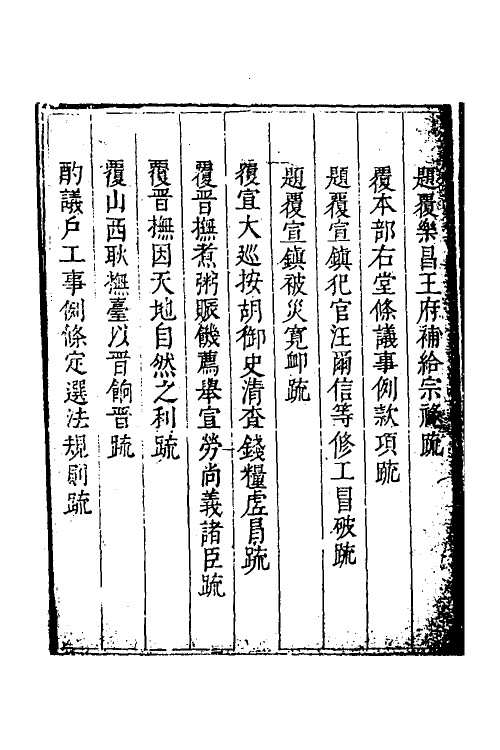 題覆樂昌王府補給宗祿疏
覆本部右堂條議事例款項疏
題覆宣鎮犯官汪爾信等修工冒破疏
題覆宣鎮被災寛卹疏
覆宣大巡按胡御史清查錢糧虛冒疏
覆晋撫煮粥賑饑薦舉宣勞尚義諸臣疏
覆晋撫因天地自然之利疏
覆山西耿撫臺以晋餉晋疏
酌議戶工事例條定選法規則疏